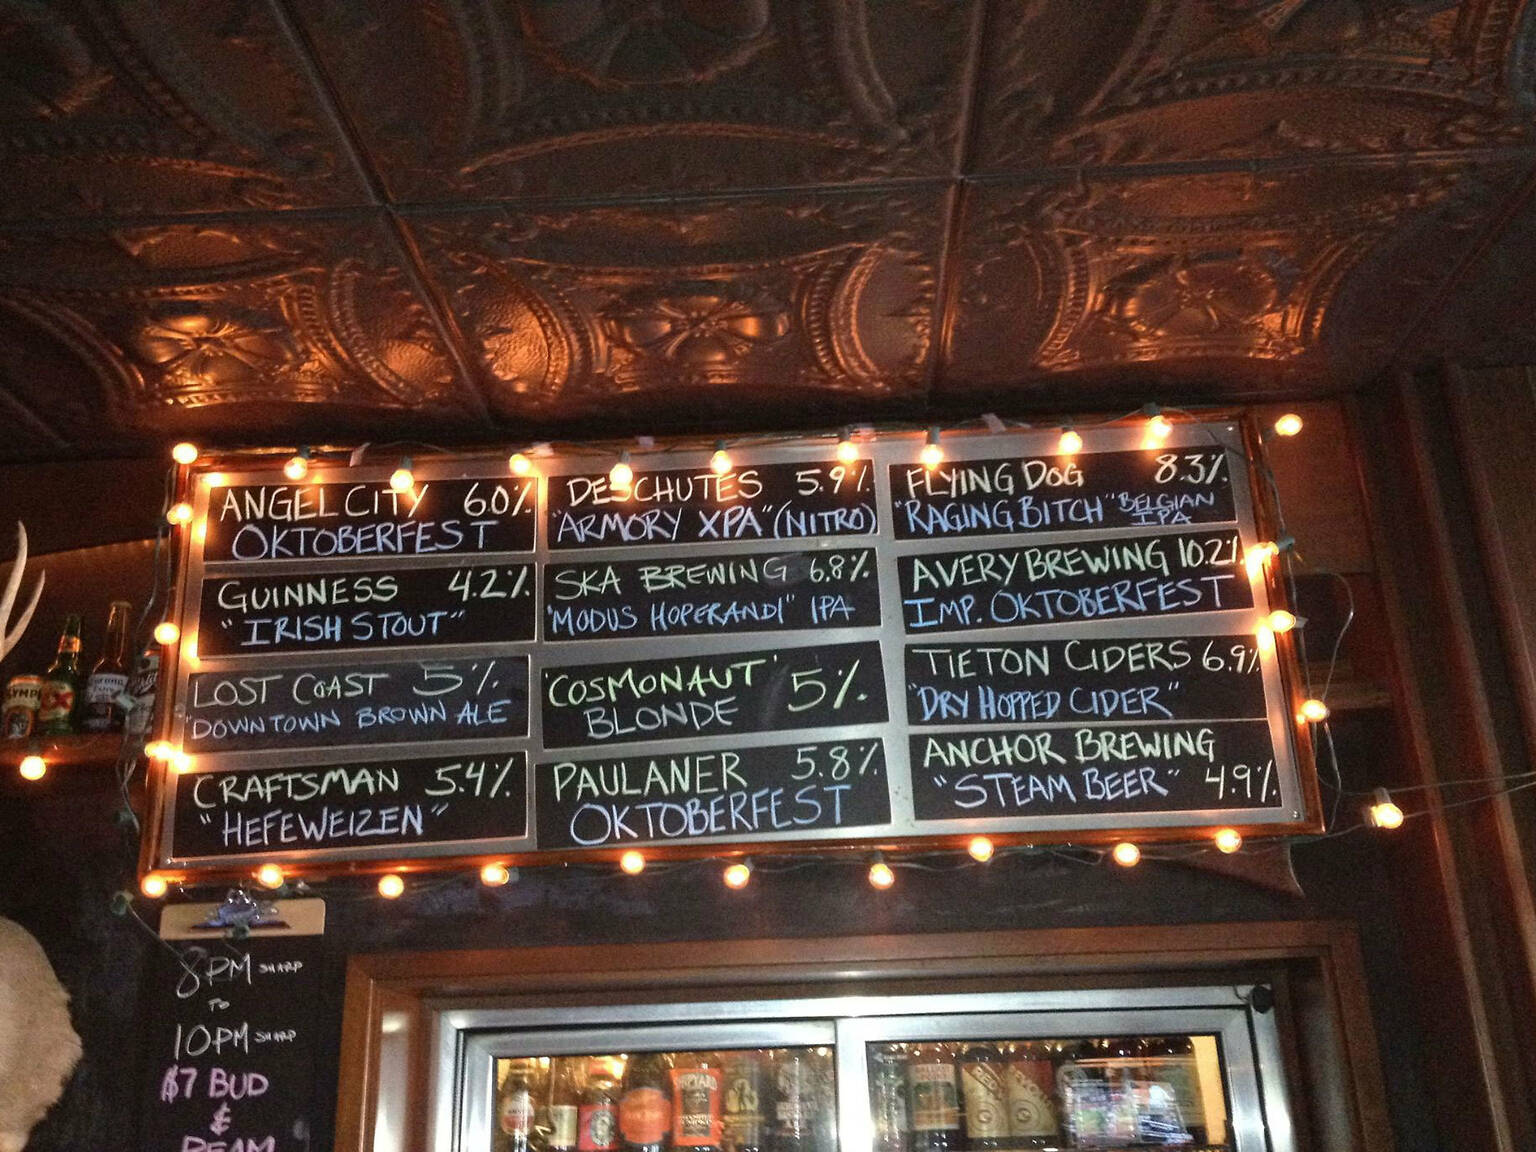 ANGEL CITY 6.0%
OKTOBERFEST
GUINNESS 4.2%
"IRISH STOUT"
LOST COAST 5%
"DOWNTOWN BROWN ALE
CRAFTSMAN 5.4%
"HEFEWEIZEN"
DESCHUTES 5.9%
"ARMORY XPA" (NITRO)
SKA BREWING 6.8%
"MODUS HOPERANDI" IPA
"COSMONAUT" 5%
BLONDE
PAULANER 5.8%
OKTOBERFEST
FLYING DOG 8.3%
"RAGING BITCH" BELGIAN
IPA
AVERY BREWING 10.2%
IMP. OKTOBERFEST
TIETON CIDERS 6.9%
"DRY HOPPED CIDER"
ANCHOR BREWING
"STEAM BEER" 4.9%
8PM SHARP
TO
10PM SHARP
$7 BUD
&
BEAM